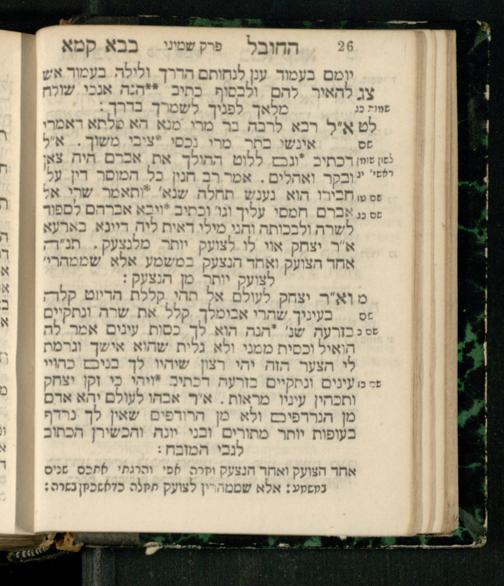 בבא קמא פרק שמיני החובל 26
יומם בעמוד ענן לנחותם הדרך ולילה בעמוד אש
להאיר להם ולבסוף כתיב *הנה אנכי שולח
צג
שמות כג
מלאך לפניך לשמרך בדרך:
לט א"ל רבא לרבה בר מרי מנא הא מלתא דאמרי
שם
אינשי בתר מרי נכסי *ציבי משוך. א"ל
דכתיב *וגם ללוט ההולך את אברם היה צאן
ובקר ואהלים. אמר רב חנן כל המוסר דין על
חבירו הוא נענש תחלה שנא' *ותאמר שרי אל
שם טז
אברם חמסי עליך וגו' וכתיב *ויבא אברהם לספוד
שם כג
לשרה ולבכותה והני מילי דאית ליה דיינא בארעא
א"ר יצחק אוי לו לצועק יותר מלנצעק. תנ"ה
אחד הצועק ואחד הנצעק במשמע אלא שממהרי'
לצועק יותר מן הנצעק:
מ וא"ר יצחק לעולם אל תהי קללת הדיוט קלה
שם
בעיניך שהרי אבימלך קלל את שרה ונתקיים
בזרעה שנ' *הנה הוא לך כסות עינים אמר לה
שם כ
הואיל וכסית ממני ולא גלית שהוא אישך וגרמת
לי הצער הזה יהי רצון שיהיו לך בנים כהויי
עינים ונתקיים בזרעה דכתיב *ויהי כי זקן יצחק
שם כז
ותכהין עיניו מראות. א"ר אבהו לעולם יהא אדם
מן הנרדפים ולא מן הרודפים שאין לך נרדף
בעופות יותר מתורים ובני יונה והכשירן הכתוב
לגבי המזבח:
אחד הצועק ואחד הנצעק וחרה אפי והרגתי אתכם שניס
במשמע: אלא שממהרין לצועק תחלה כדאשכחן בשרה: